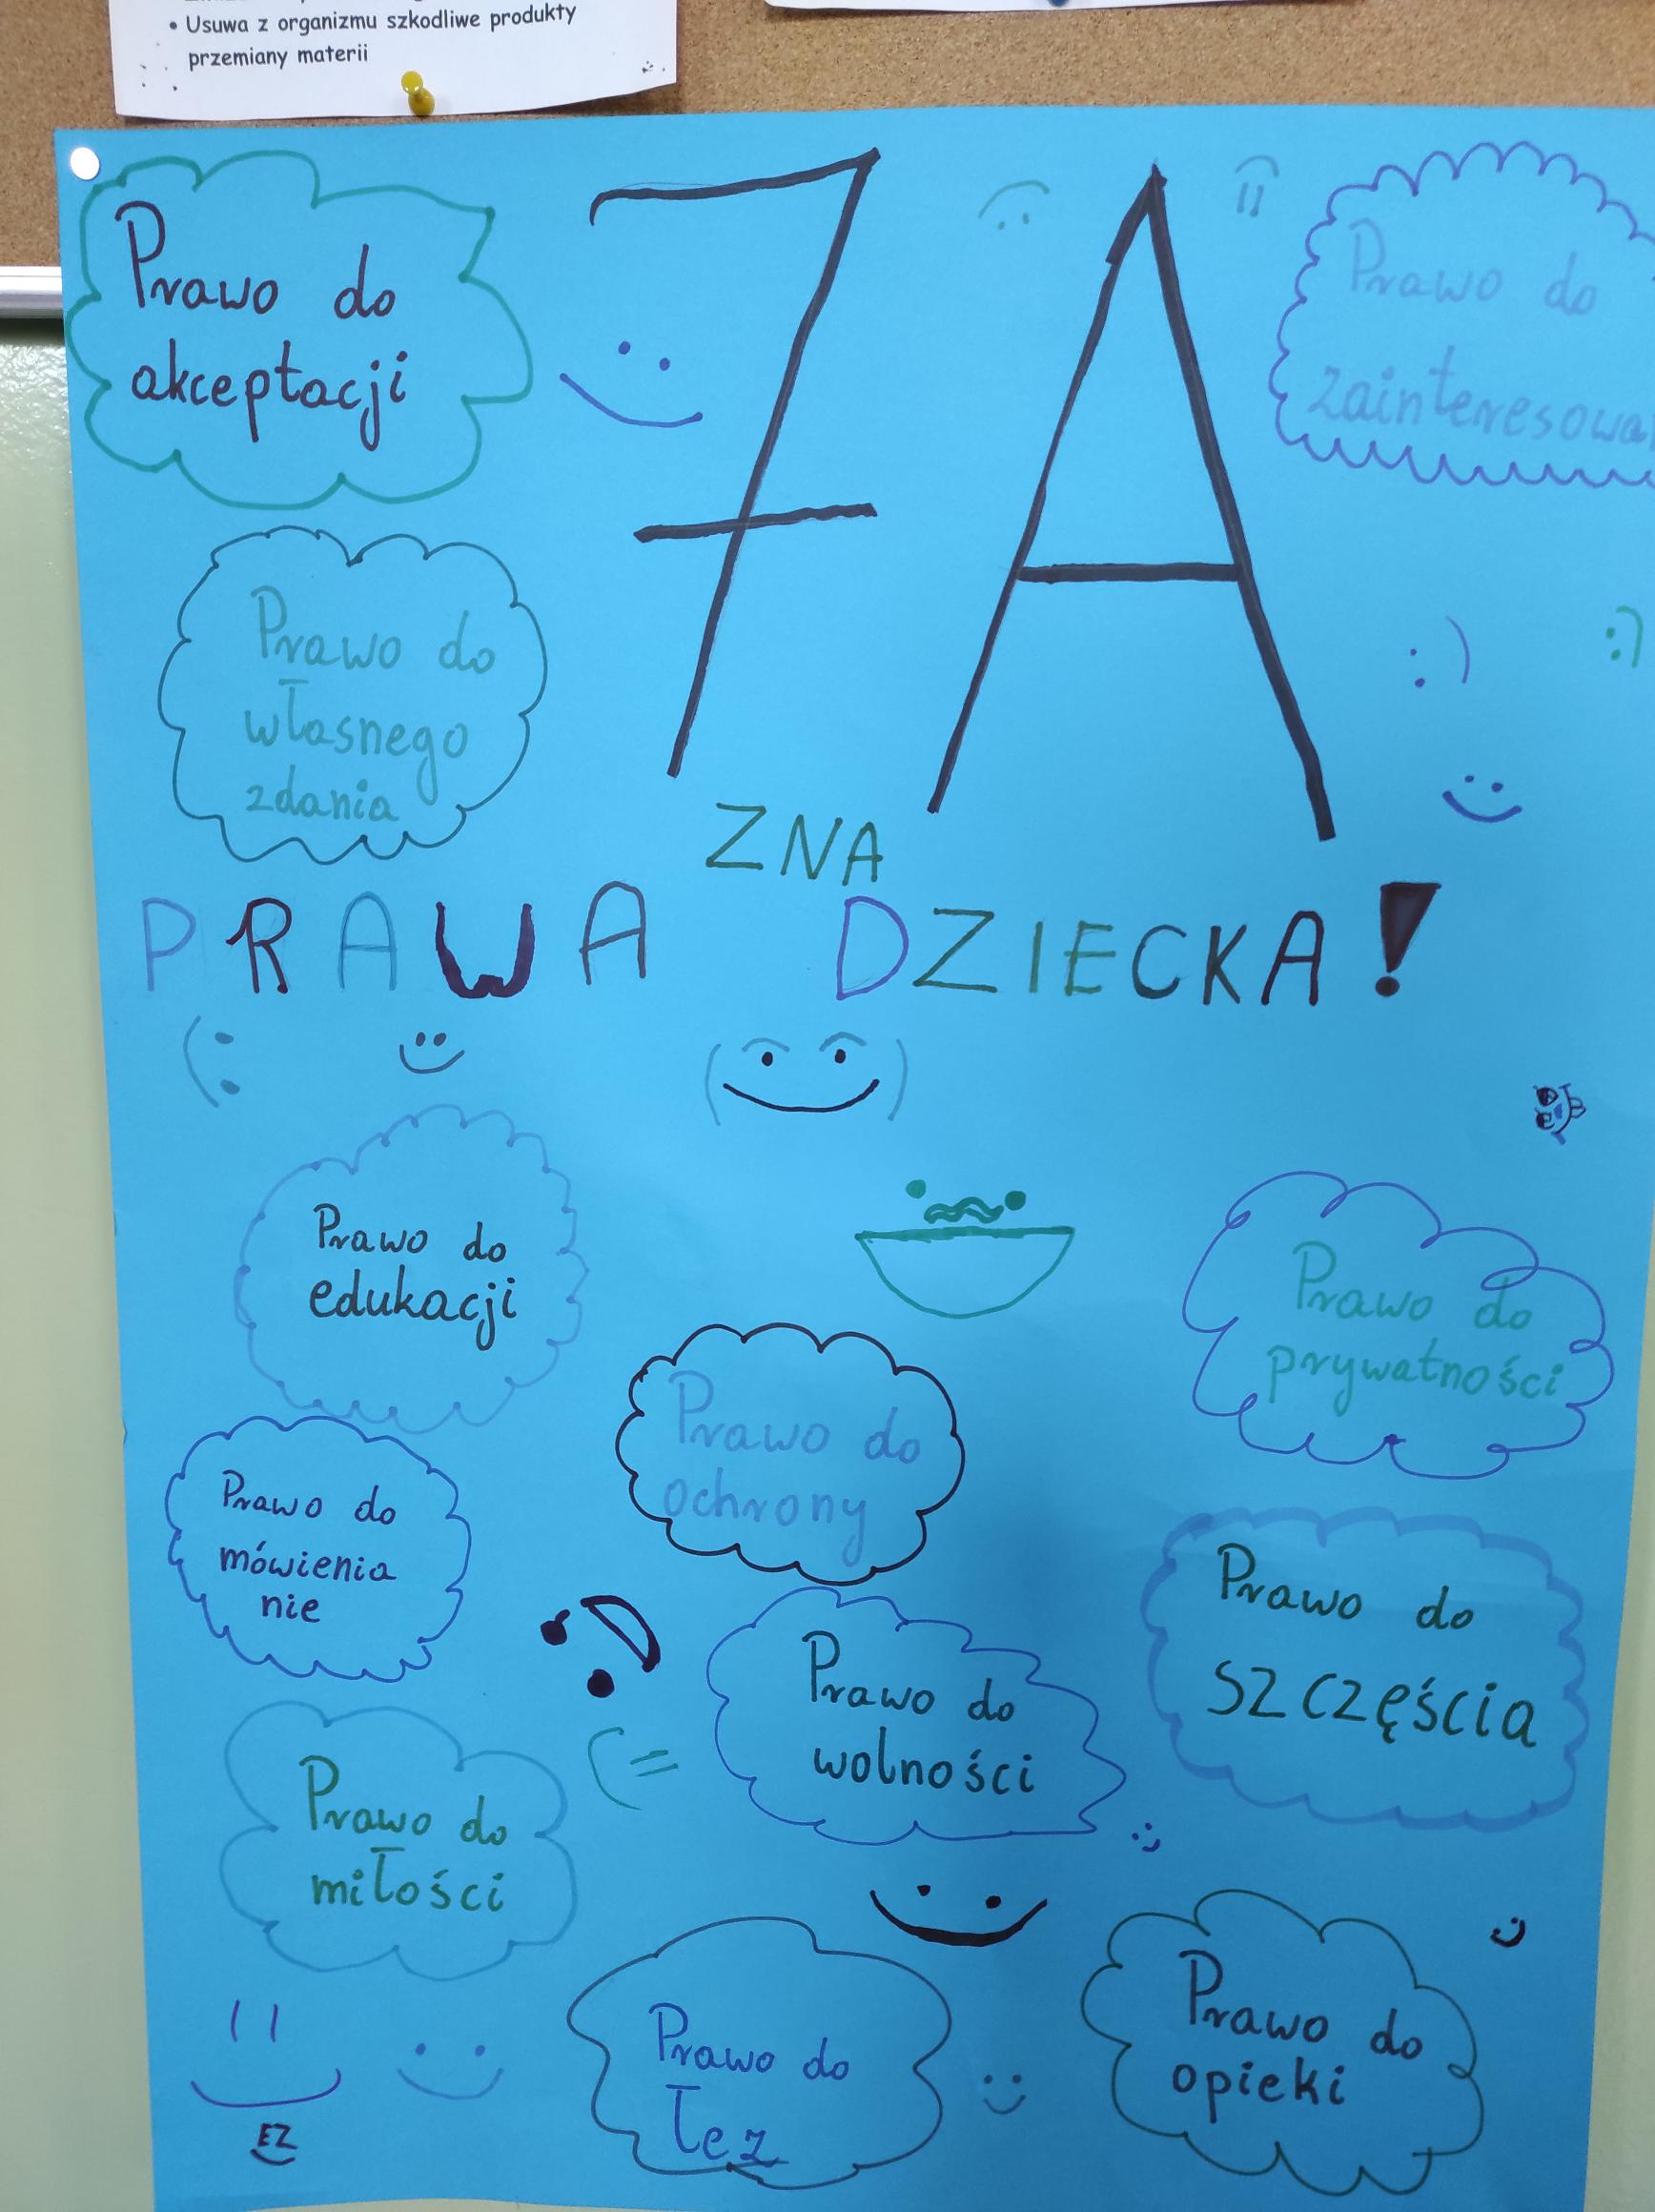 • Usuwa z organizmu szkodliwe produkty
przemiany materii
7A
Prawo do
akceptacji
Prawo do
Prawo do
własnego
zdania
ZNA
PRAWA DZIECKA!
Prawo do
edukacji
Prawo do
prywatności
Prawo do
ochrony
Prawo do
mówienia
nie
Prawo do
wolności
Prawo do
szczęścia
Prawo do
miłości
Prawo do
łez
Prawo do
opieki
EZ